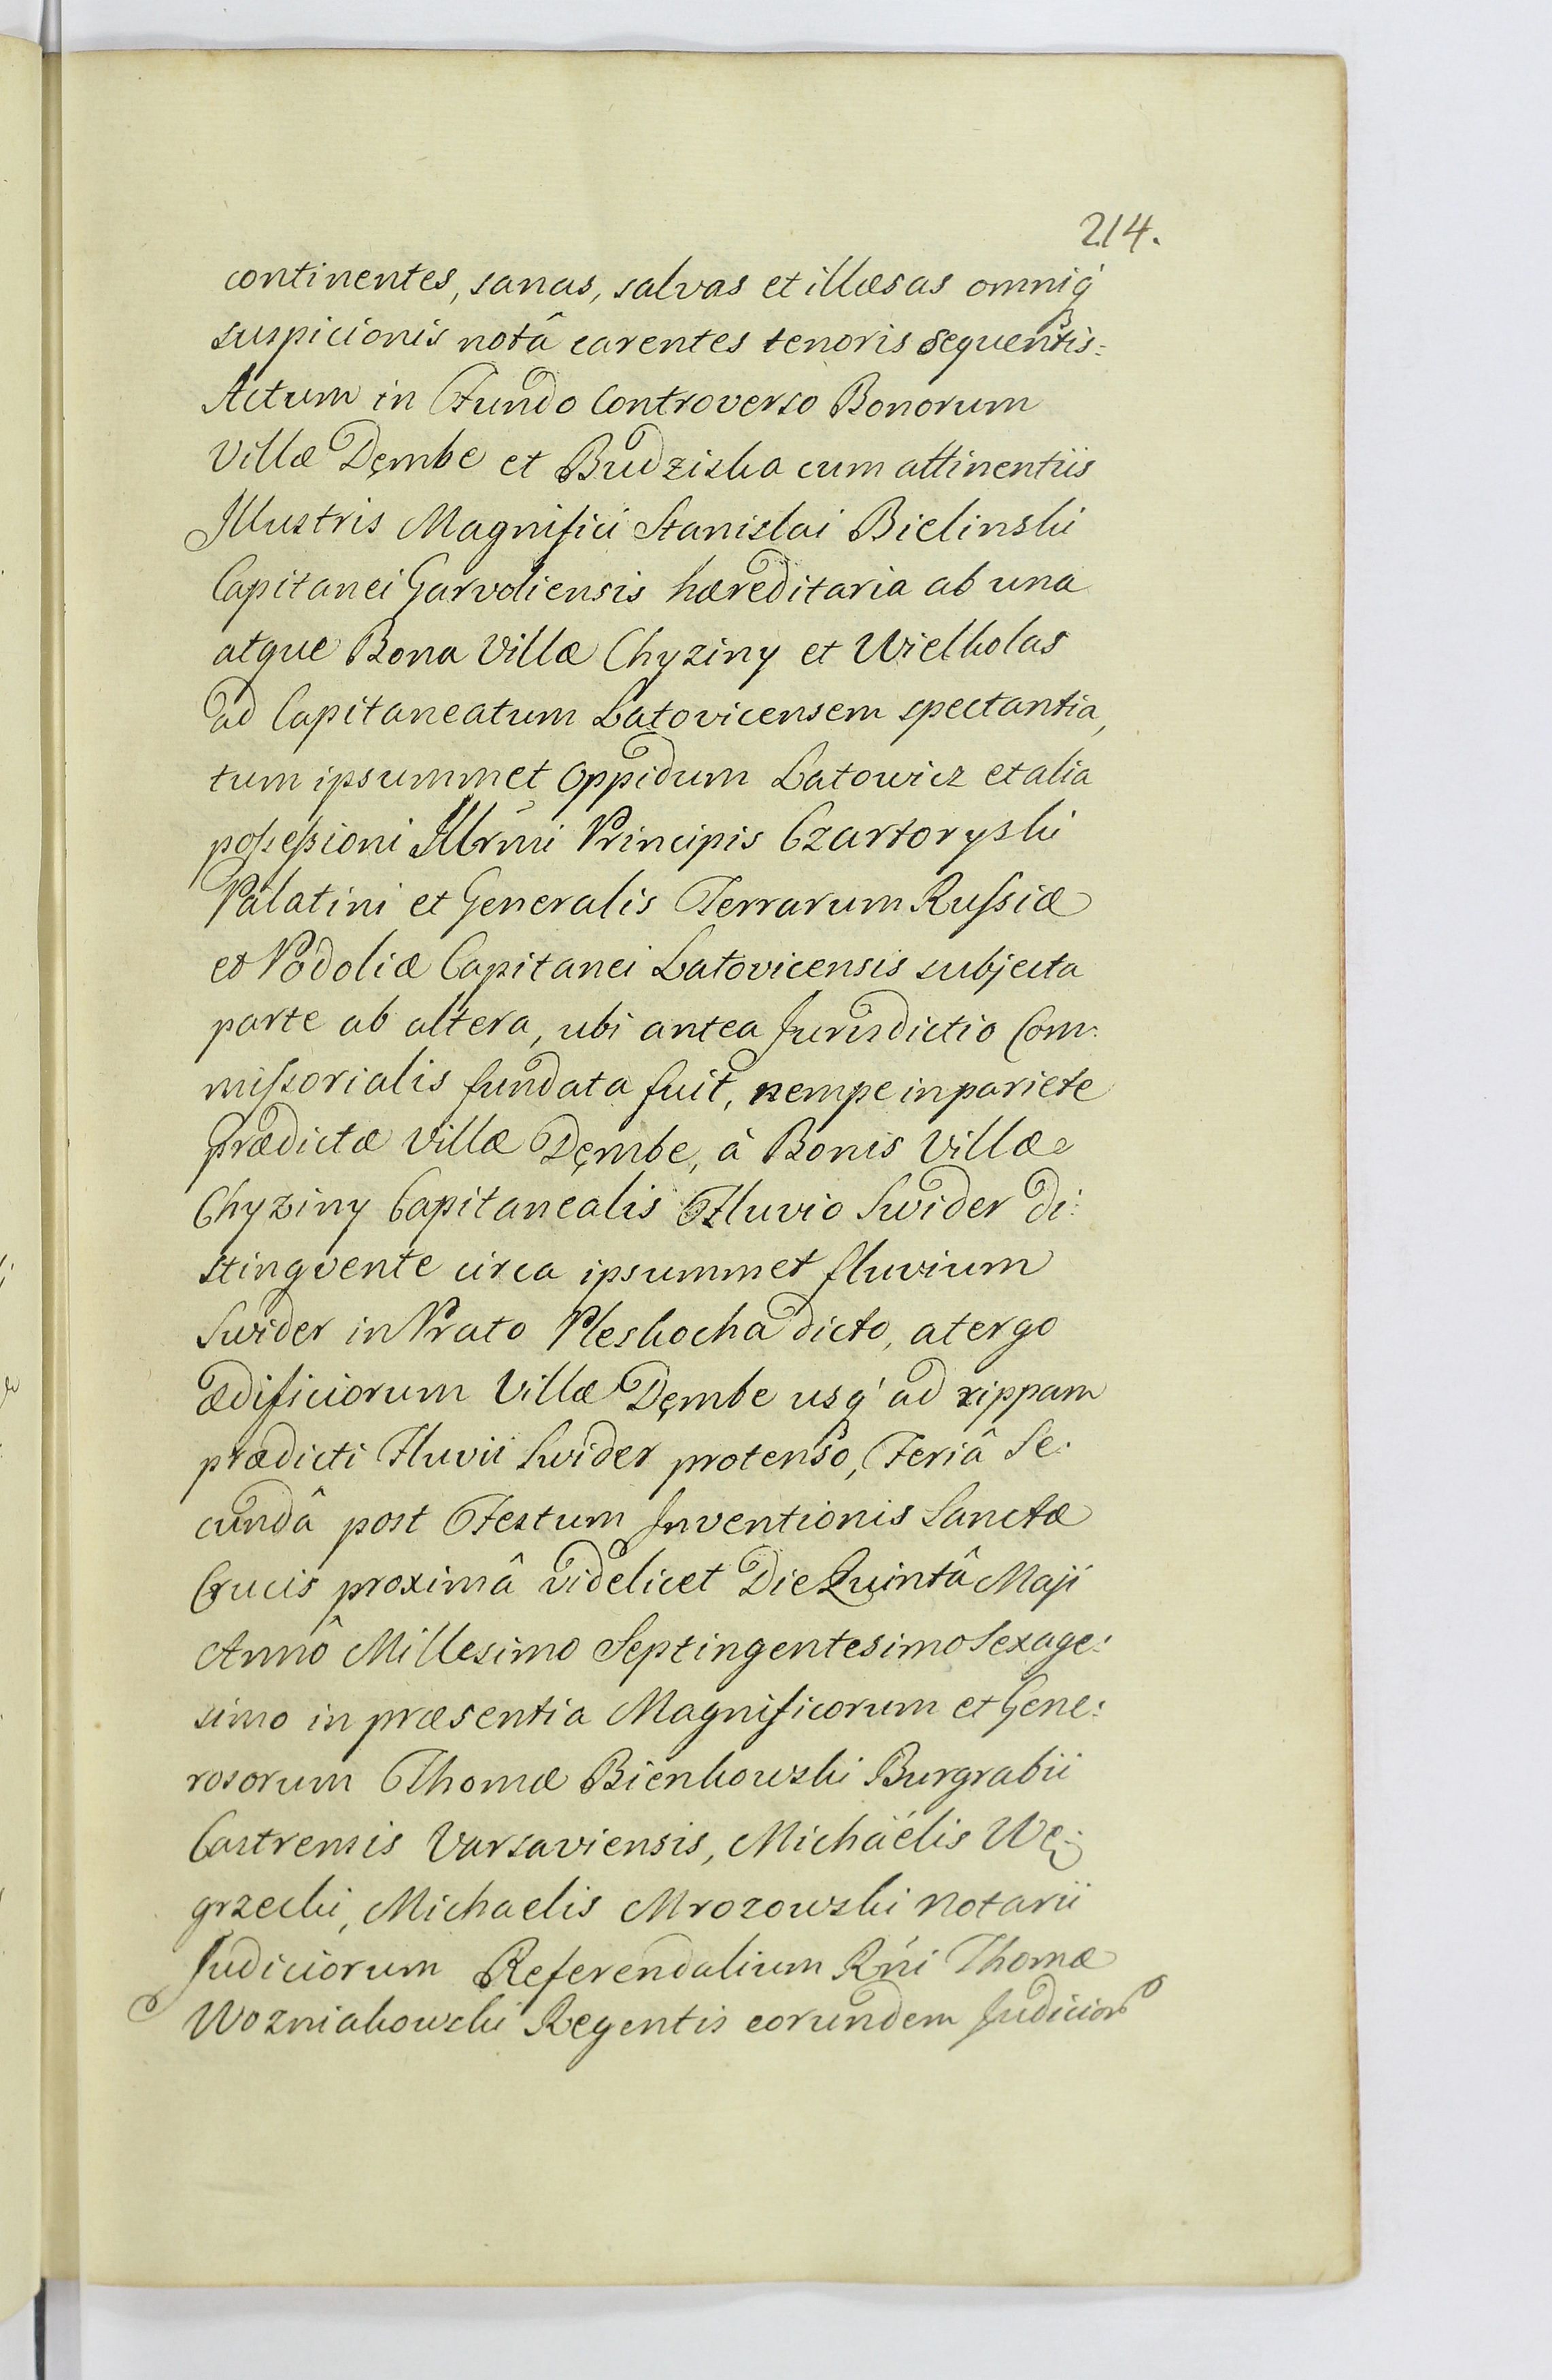 214.
continentes, sanas, salvas et illæsas omniq́
suspicionis notâ carentes tenoris sequentis:
Actum in Fundo Controverso Bonorum
Villæ Dęmbe et Budziska cum attinentiis
Illustris Magnifici Stanislai Bielinski
Capitanei Garvoliensis hæreditaria ab una
atque Bona Villæ Chyziny et Wielkolas
ad Capitaneatum Latovicensem spectantia,
tum ipsummet Oppidum Latowicz et alia
possessioni Illrmi Principis Czartoryski
Palatini et Generalis Terrarum Russiæ
et Podoliæ Capitanei Latovicensis subjecta
parte ab altera, ubi antea Jurisdictio Com:
missorialis fundata fuit, nempe in pariete
prædictæ Villæ Dęmbe, à Bonis Villæ
Chyziny Capitanealis Fluvio Swider di:
stingvente circa ipsummet fluvium
Swider in Prato Pleskocha dicto, a tergo
ædificiorum Villæ Dęmbe usq́ ad rippam
prædicti Fluvii Swider protenso, Feriâ Se:
cundâ post Festum Inventionis Sanctæ
Crucis proximâ videlicet Die Quintâ Maji
Annô Millesimo Septingentesimo Sexage:
simo in præsentia Magnificorum et Gene:
rosorum Thomæ Bienkowski Burgrabii
Castrensis Varsaviensis, Michaëlis Wę:
grzecki, Michaelis Mrozowski Notarii
Judiciorum Referendalium Rńi Thomæ
Wozniakowski Regentis eorundem Judicior